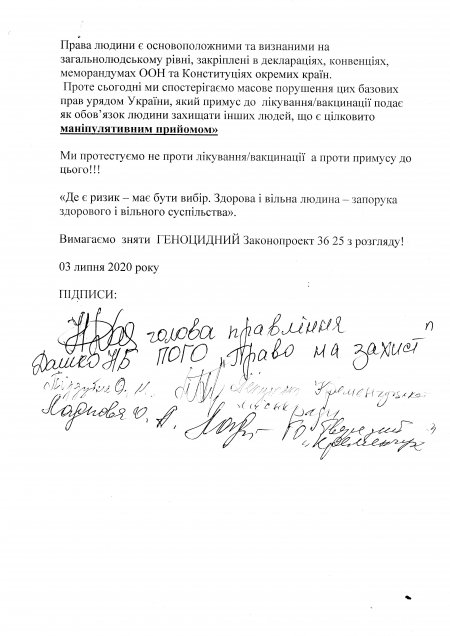 Права людини є основоположними та визнаними на
загальнолюдському рівні, закріплені в деклараціях, конвенціях,
меморандумах ООН та Конституціях окремих країн.
Проте сьогодні ми спостерігаємо масове порушення цих базових
прав урядом України, який примус до лікування/вакцинації подає
як обов'язок людини захищати інших людей, що є цілковито
маніпулятивним прийомом»
Ми протестуємо не проти лікування/вакцинації а проти примусу до
цього!!!
«Де є ризик – має бути вибір. Здорова і вільна людина – запорука
здорового і вільного суспільства».
Вимагаємо зняти ГЕНОЦИДНИЙ Законопроект 36 25 з розгляду!
03 липня 2020 року
ПІДПИСИ:
голова правління
Дашко НБ ПОГО „Право на захист"
О. М.
Ю. А. ГО